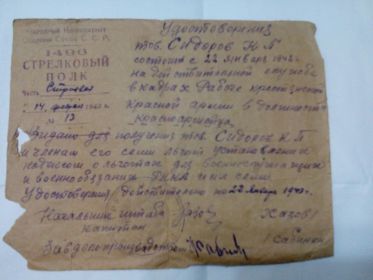 Народный Комиссариат
Обороны Союза С.С.Р.
СТРЕЛКОВЫЙ
ПОЛК
Часть Строевая
№ 13
Удостоверение
тов. Сидоров
состоит с 22 января 1942 г.
на действительной службе
в кадрах Рабоче крестьянской
красной армии в должности
красноармейца
Выдано для получения тов. Сидоров
и членам его семьи льгот
о льготах для военнослужащих
и военнообязанных РККА и их семей
Удостоверение действительно по 22 января
Начальник штаба
капитан
Хазов
Завделопроизводством